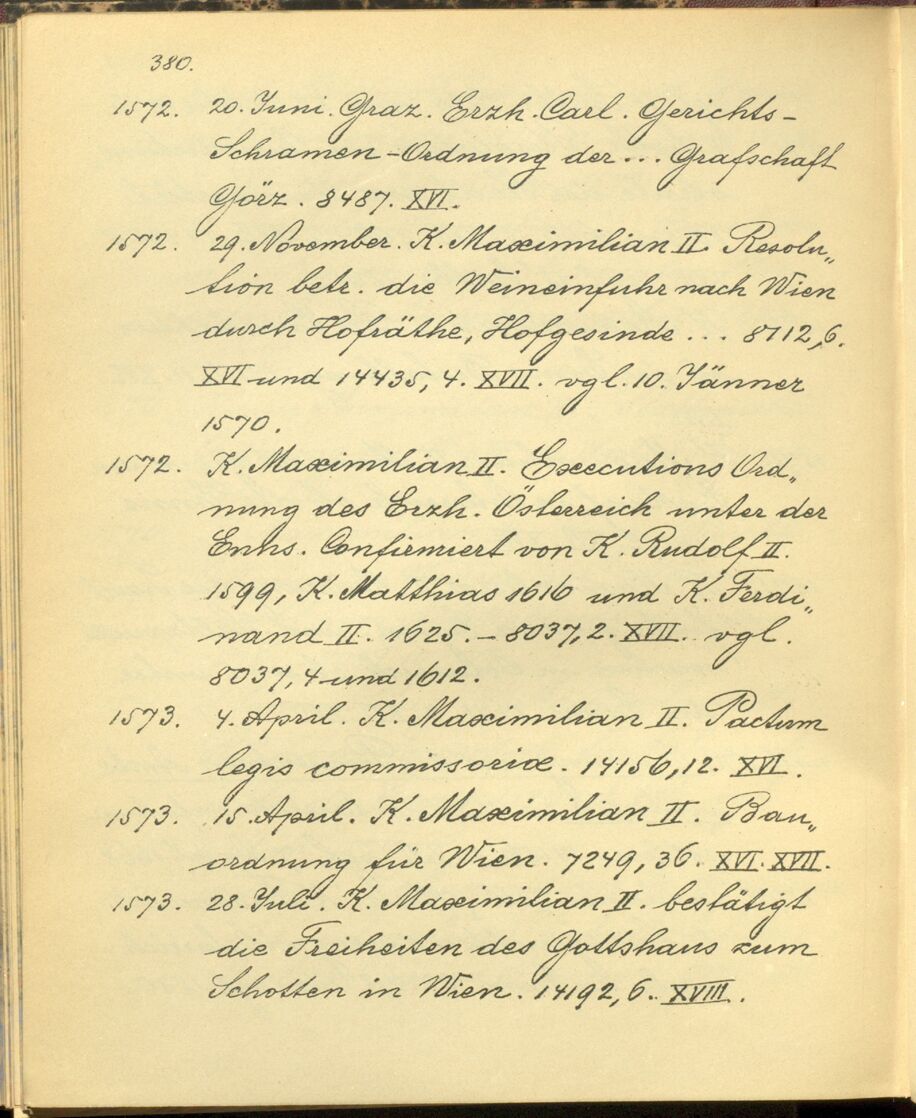 380.
1572. 20. Juni. Graz. Erzh. Carl. Gerichts-
Schramen-Ordnung der ... Grafschaft
Görz. 8487. XVI.
1572. 29. November. K. Maximilian II. Resolu„
tion betr. die Weineinfuhr nach Wien
durch Hofräthe, Hofgesinde ... 8112,6.
XVI und 14435, 4. XVII. vgl. 10. Jänner
1570.
1572. K. Maximilian II. Executions Ord„
nung des Erzh. Österreich unter der
Enns. Confirmiert von K. Rudolf II.
1599, K. Matthias 1616 und K. Ferdi„
nand II. 1625. - 8037, 2. XVII. vgl.
8037, 4 und 1612.
1573. 4. April. K. Maximilian II. Pactum
legis commissoriæ. 14156, 12. XVI.
1573. 15. April. K. Maximilian II. Bau„
ordnung für Wien. 7249, 36. XVI. XVII.
1573. 28. Juli. K. Maximilian II. bestätigt
die Freiheiten des Gottshaus zum
Schotten in Wien. 14192, 6. XVIII.